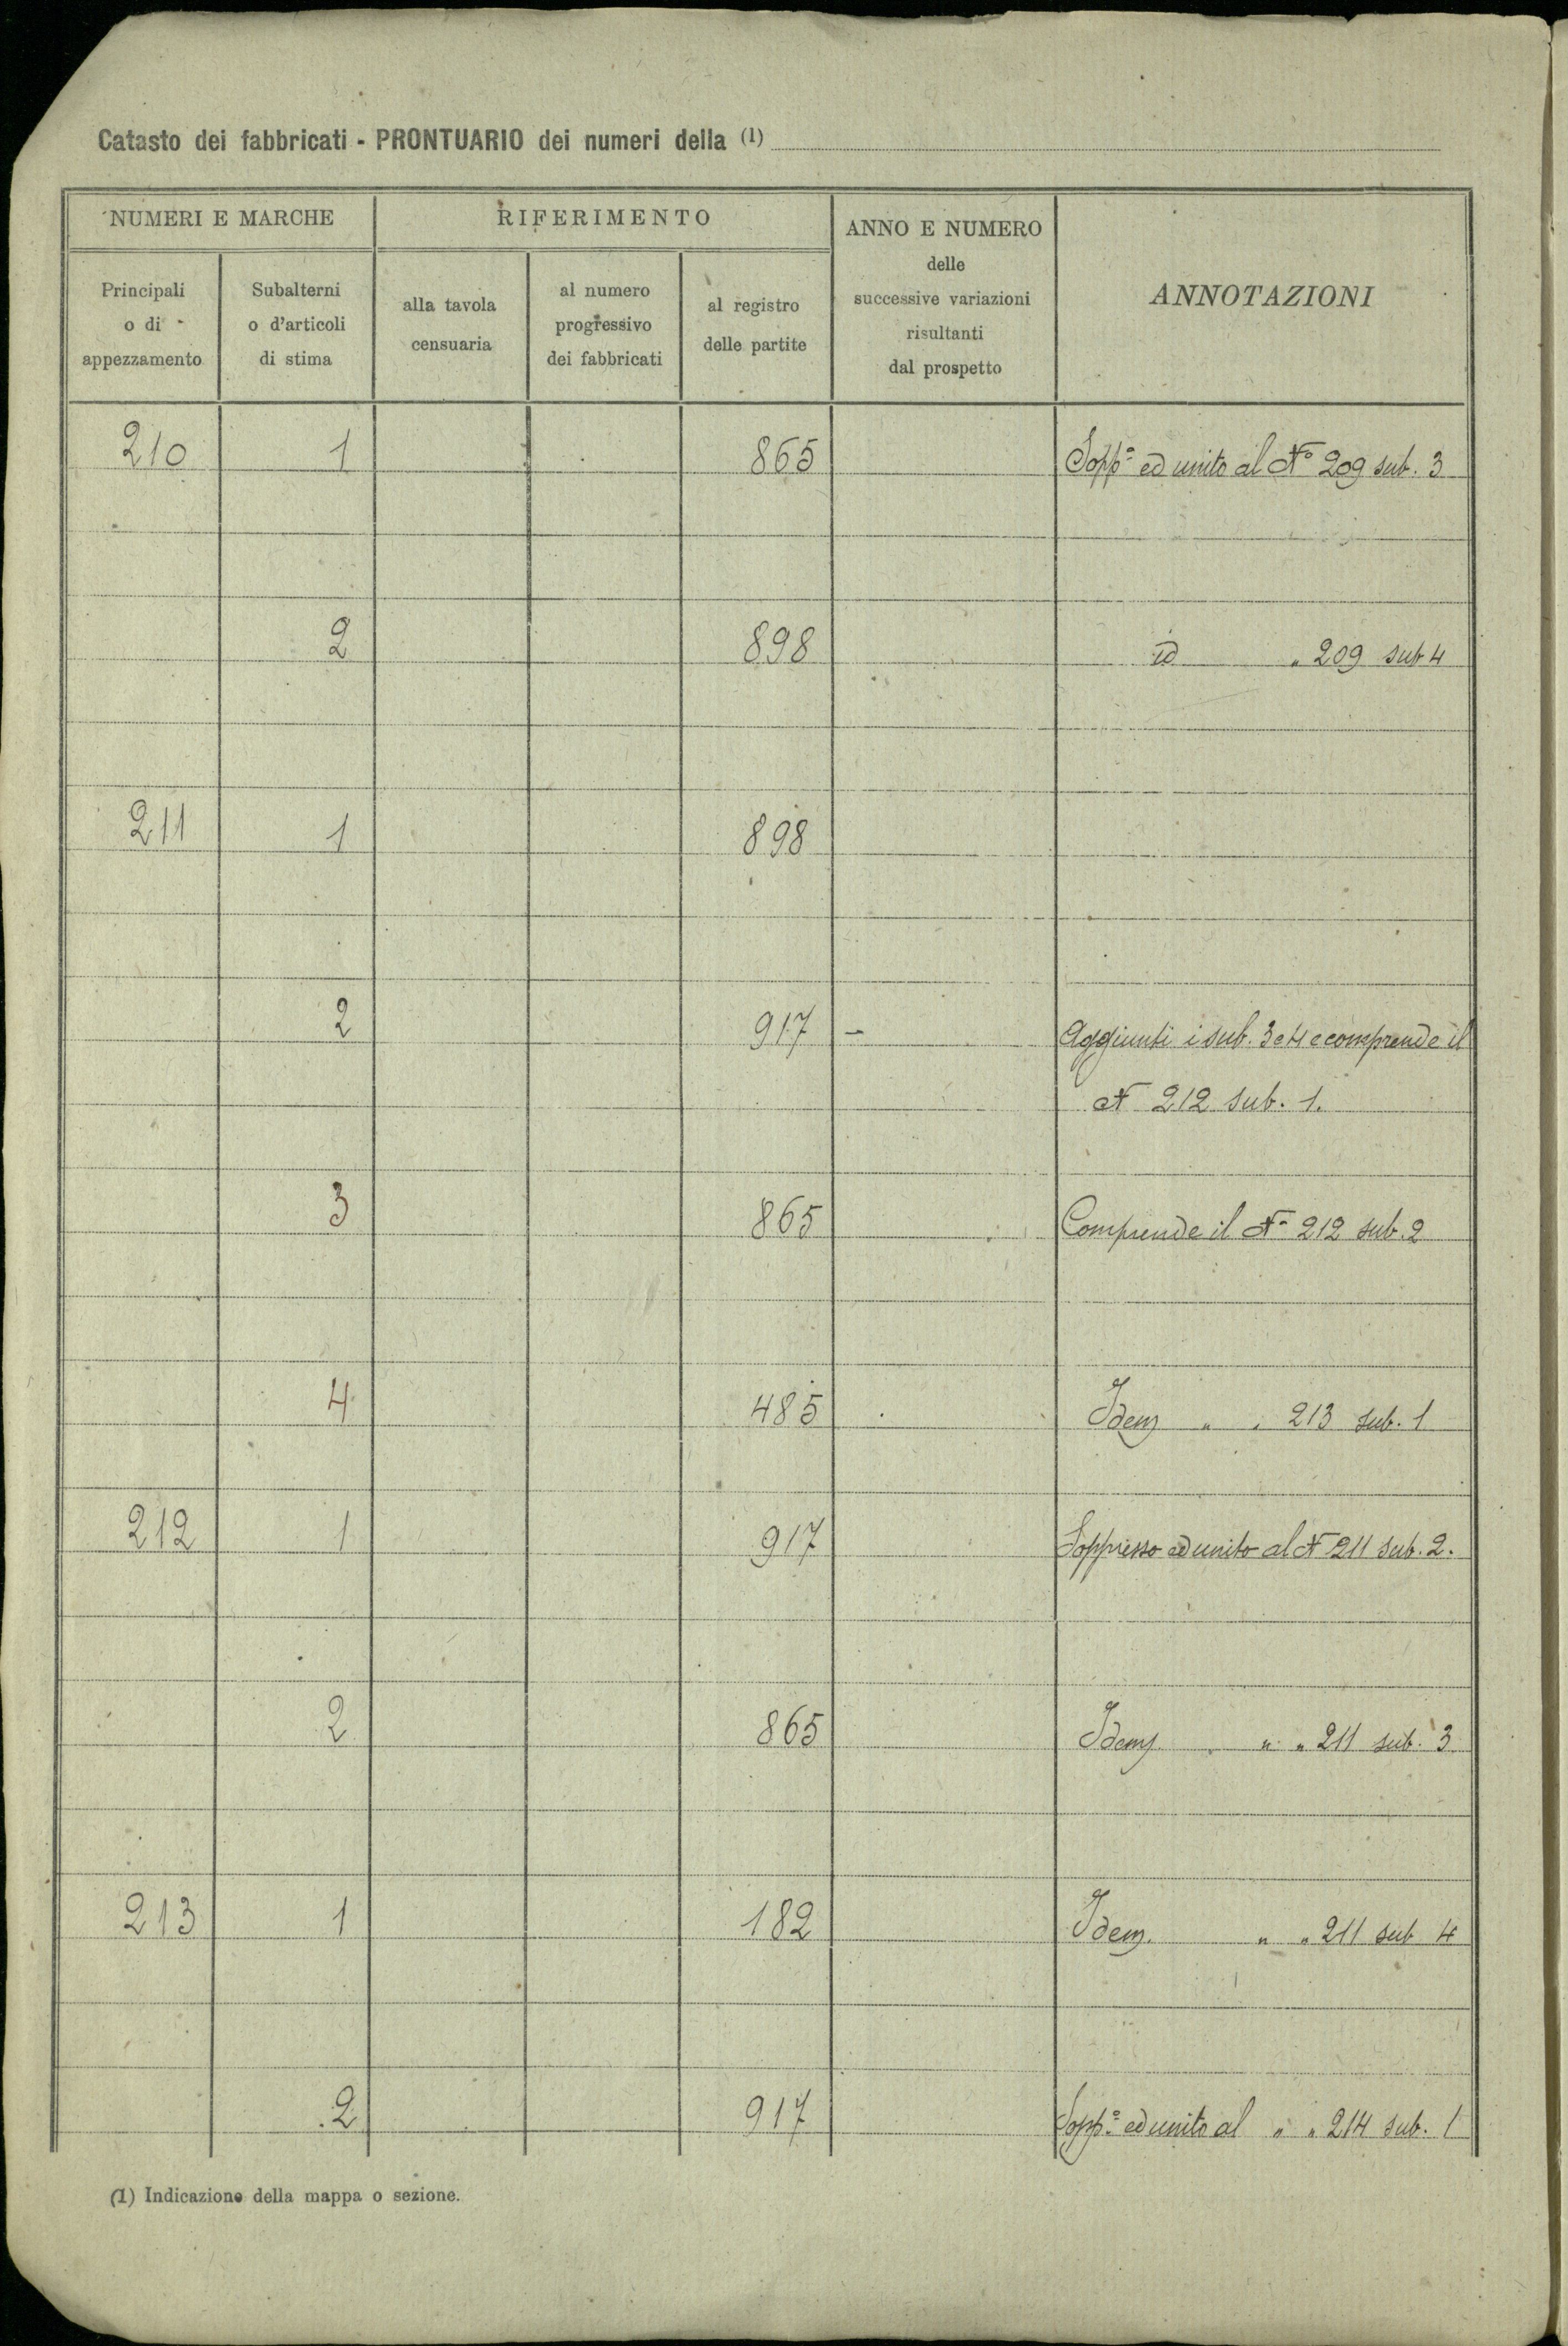 Catasto dei fabbricati - PRONTUARIO dei numeri della (1)
NUMERI E MARCHE
RIFERIMENTO
ANNO E NUMERO
delle
successive variazioni
risultanti
dal prospetto
ANNOTAZIONI
Principali
o di
appezzamento
Subalterni
o d'articoli
di stima
alla tavola
censuaria
al numero
progressivo
dei fabbricati
al registro
delle partite
210 1 865 Sopp.º ed unito al Nº 209 sub. 3
2 898 id „ 209 sub 4
211 1 898
2 917 – Aggiunti i sub. 3 e 4 e comprende il
N 212 sub. 1.
3 865 Comprende il N- 212 sub. 2
4 485 Idem „ „ 213 sub. 1
212 1 917 Soppresso ed unito al N 211 sub. 2.
2 865 Idem „ „ 211 sub. 3
213 1 182 Idem. „ „ 211 sub 4
2 917 Sopp.º ed unito al „ „ 214 sub. 1
(1) Indicazione della mappa o sezione.